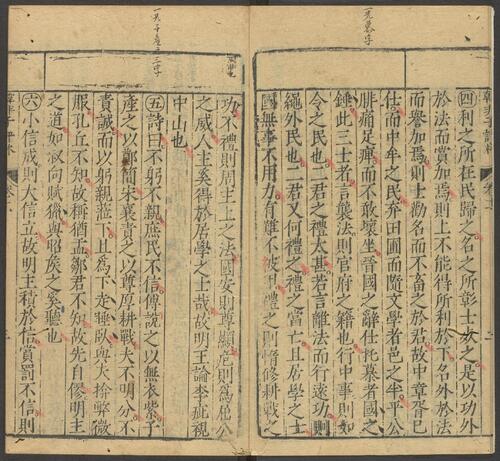 四利之所在民歸之名之所彰士死之是以功外
於法而賞加焉則上不能得所利於下名外於法
而譽加焉則士勸名而不畜之於君故中章胥已
仕而中牟之民弃田圃而隨文學者邑之半平公
腓痛足痺而不敢壞坐晉國之辭仕托慕者國之
錘此三士者言襲法則官府之籍也行中事則如
令之民也二君之禮太甚若言離法而行遠功則
繩外民也二君又何禮之禮之當亡且居學之士
國無事不用力有難不被甲禮之則惰修耕戰之
功不禮則周主上之法國安則尊顯危則為屈公
之威人主奚得於居學之士哉故明王論李疵視
中山也
五詩曰不躬不親庶民不信傅說之以無衣紫子
產之以鄭簡宋襄責之以尊厚耕戰夫不明分不
責誠而以躬親蒞下且為下走睡臥與夫揜弊微
服孔丘不知故稱猶盂鄒君不知故先自僇明主
之道如叔向賦獵與昭侯之奚聽也
六小信成則大信立故明主積於信賞罰不信則